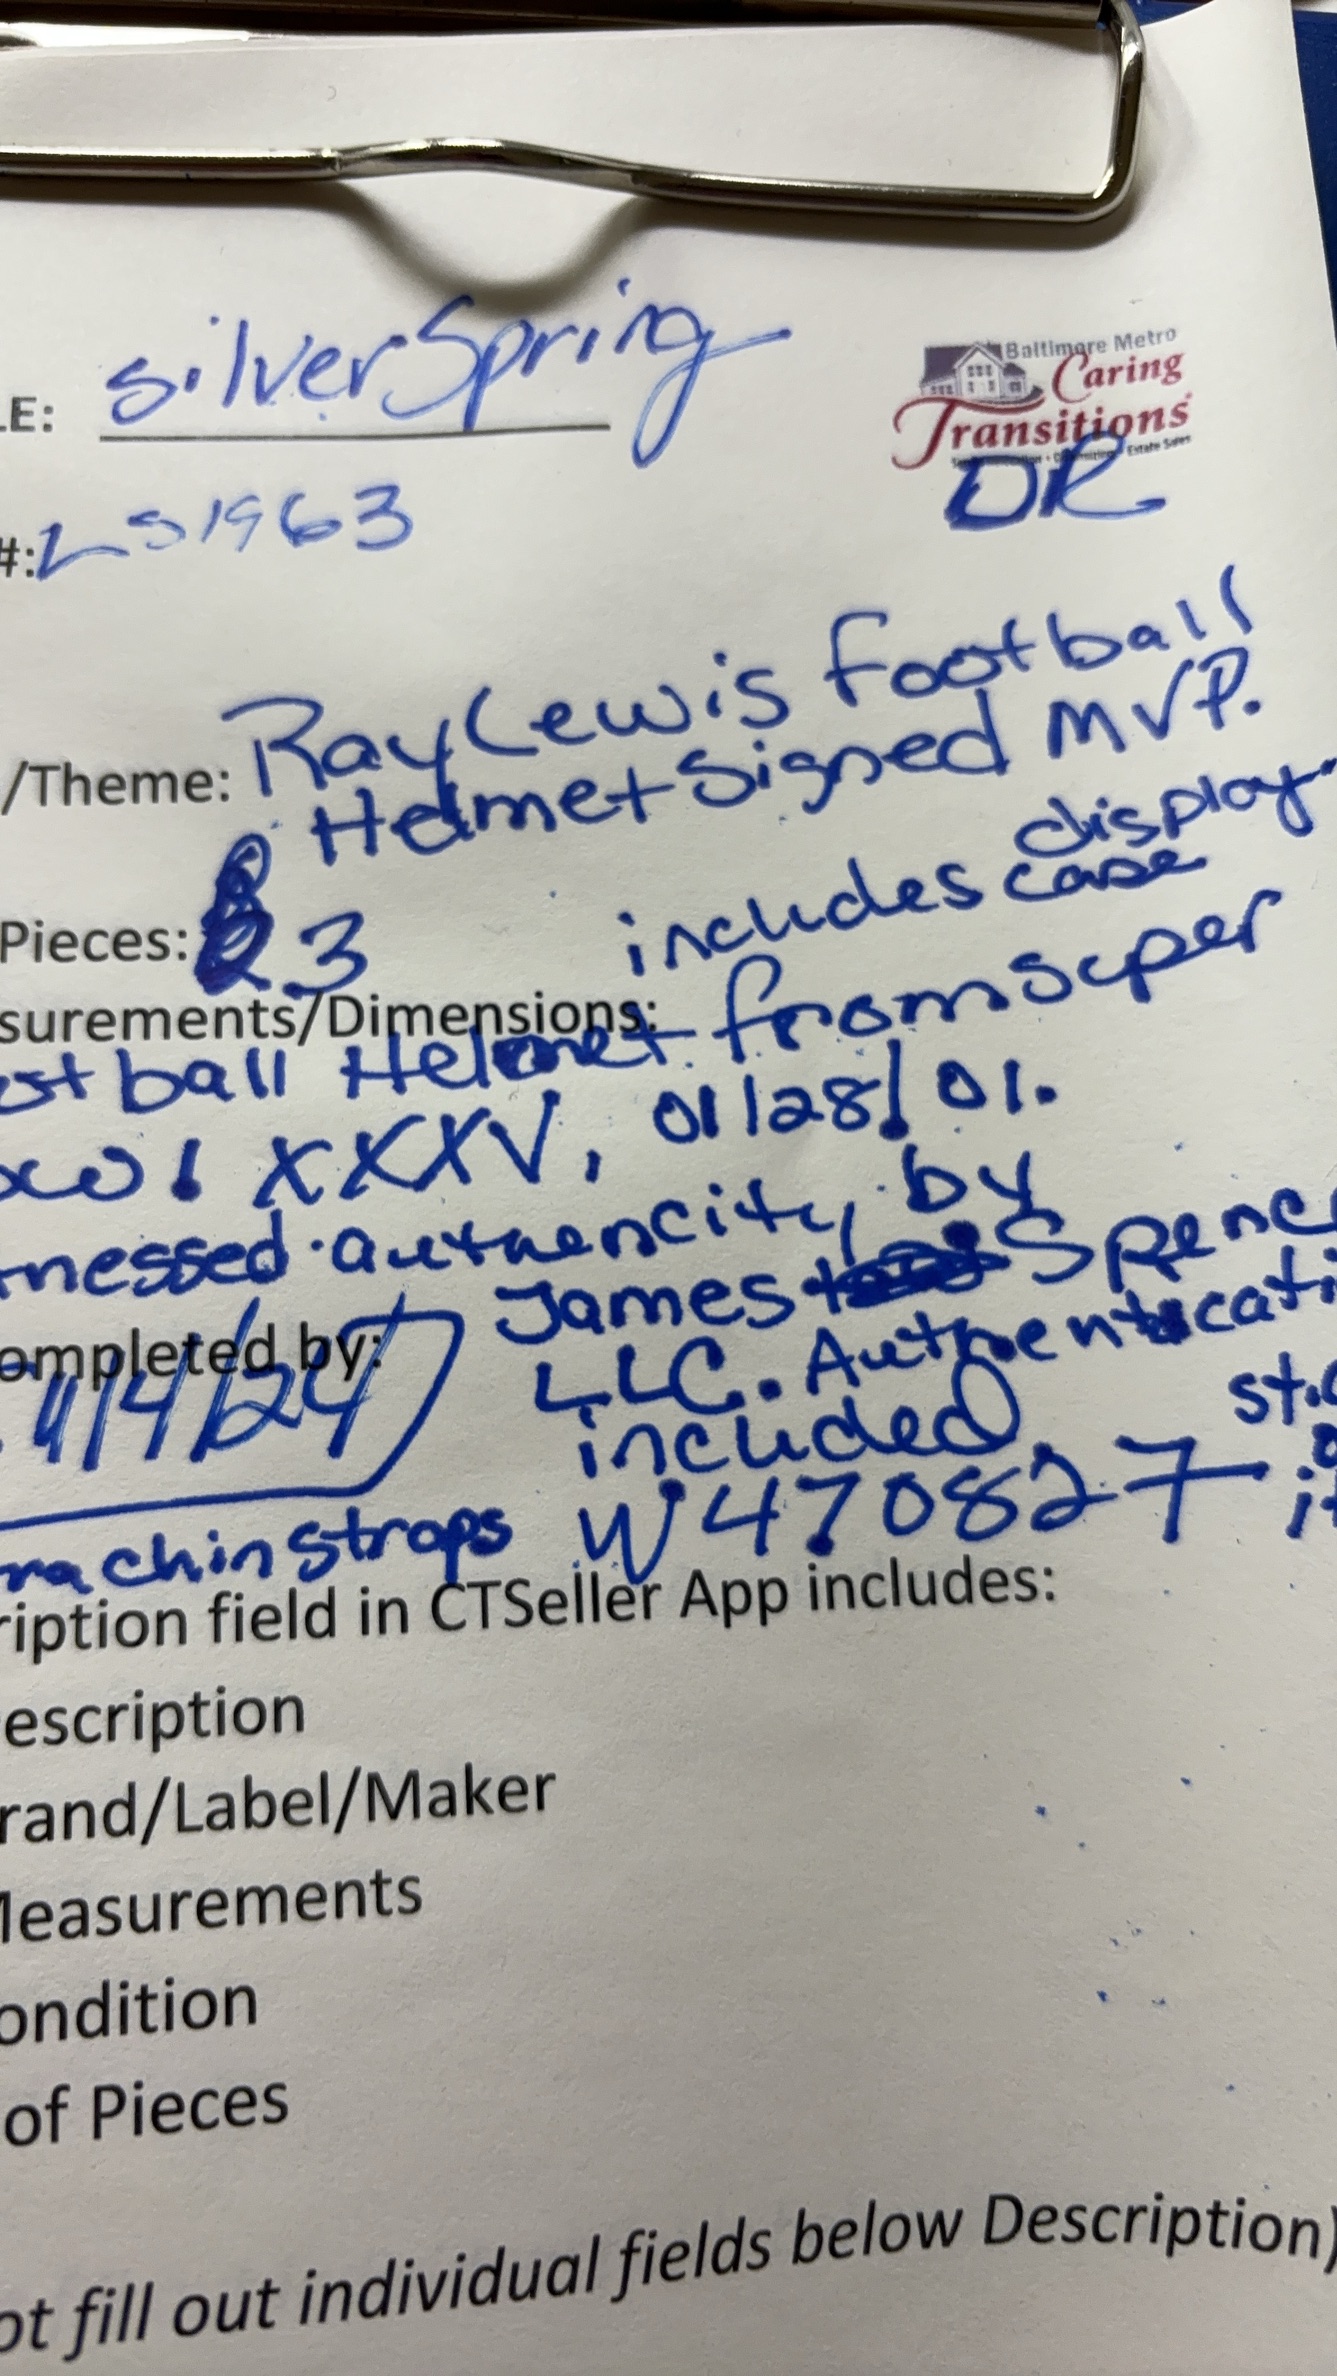 LE: Silver Spring
Baltimore Metro
Caring
Transitions
Estate Sales
DR
#: LS1963
Ray Lewis Football
/Theme: Helmet Signed MVP.
display
includes case
Pieces: 3
surements/Dimensions:
ot ball Helmet from super
owl XXXV, 01/28/01.
nessed authencity by
James Spenc
ompleted by: LLC. Authenticati
11/4/24 included
W470827
ra chin straps
ription field in CTSeller App includes:
escription
rand/Label/Maker
Measurements
ondition
of Pieces
ot fill out individual fields below Description)